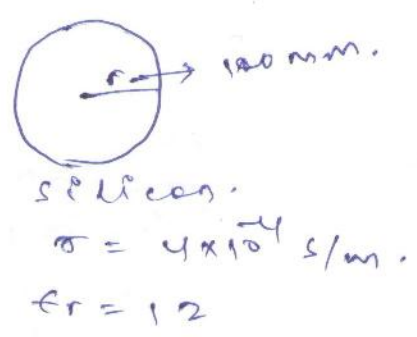 r → 100 mm.
silicon.
σ = 4×10⁻⁴ S/m.
εr = 12